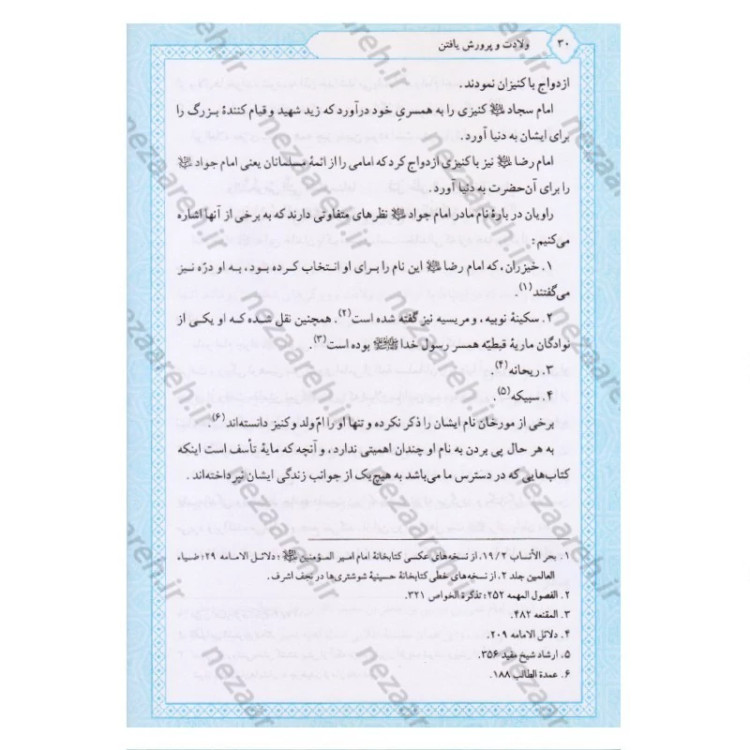 ۳۰ ولادت و پرورش یافتن
ازدواج با کنیزان نمودند.
امام سجاد ﷷ کنیزی را به همسریِ خود درآورد که زید شهید و قیام کنندهٔ بزرگ را
برای ایشان به دنیا آورد.
امام رضا نیز با کنیزی ازدواج کرد که امامی را از ائمهٔ مسلمانان یعنی امام جواد
را برای آن‌حضرت به دنیا آورد.
راویان در بارهٔ نام مادر امام جواد نظرهای متفاوتی دارند که به برخی از آنها اشاره
می‌کنیم:
۱. خیزران، که امام رضا این نام را برای او انتخاب کرده بود، به او درّه نیز
می‌گفتند(۱).
۲. سکینهٔ نوبیه، و مریسیه نیز گفته شده است(۲). همچنین نقل شده که او یکی از
نوادگان ماریهٔ قبطیّه همسر رسول خدا بوده است(۳).
۳. ریحانه(۴).
۴. سبیکه(۵).
برخی از مورخان نام ایشان را ذکر نکرده و تنها او را امّ ولد و کنیز دانسته‌اند(۶).
به هر حال پی بردن به نام او چندان اهمیتی ندارد، و آنچه که مایهٔ تأسف است اینکه
کتاب‌هایی که در دسترس ما می‌باشد به هیچ‌یک از جوانب زندگی ایشان نپرداخته‌اند.
۱. بحر الأنساب ۱۹/۲، از نسخه‌های عکسی کتابخانهٔ امام امیر المؤمنین ؛ دلائل الامامه ۲۹؛ ضیاء
العالمین جلد ۲. از نسخه‌های خطی کتابخانهٔ حسینیهٔ شوشتری‌ها در نجف اشرف.
۲. الفصول المهمه ۲۵۲؛ تذکرة الخواص ۳۲۱.
۳. المقنعه ۴۸۲.
۴. دلائل الامامه ۲۰۹.
۵. ارشاد شیخ مفید ۳۵۶.
۶. عمدة الطالب ۱۸۸.
nezaareh.ir